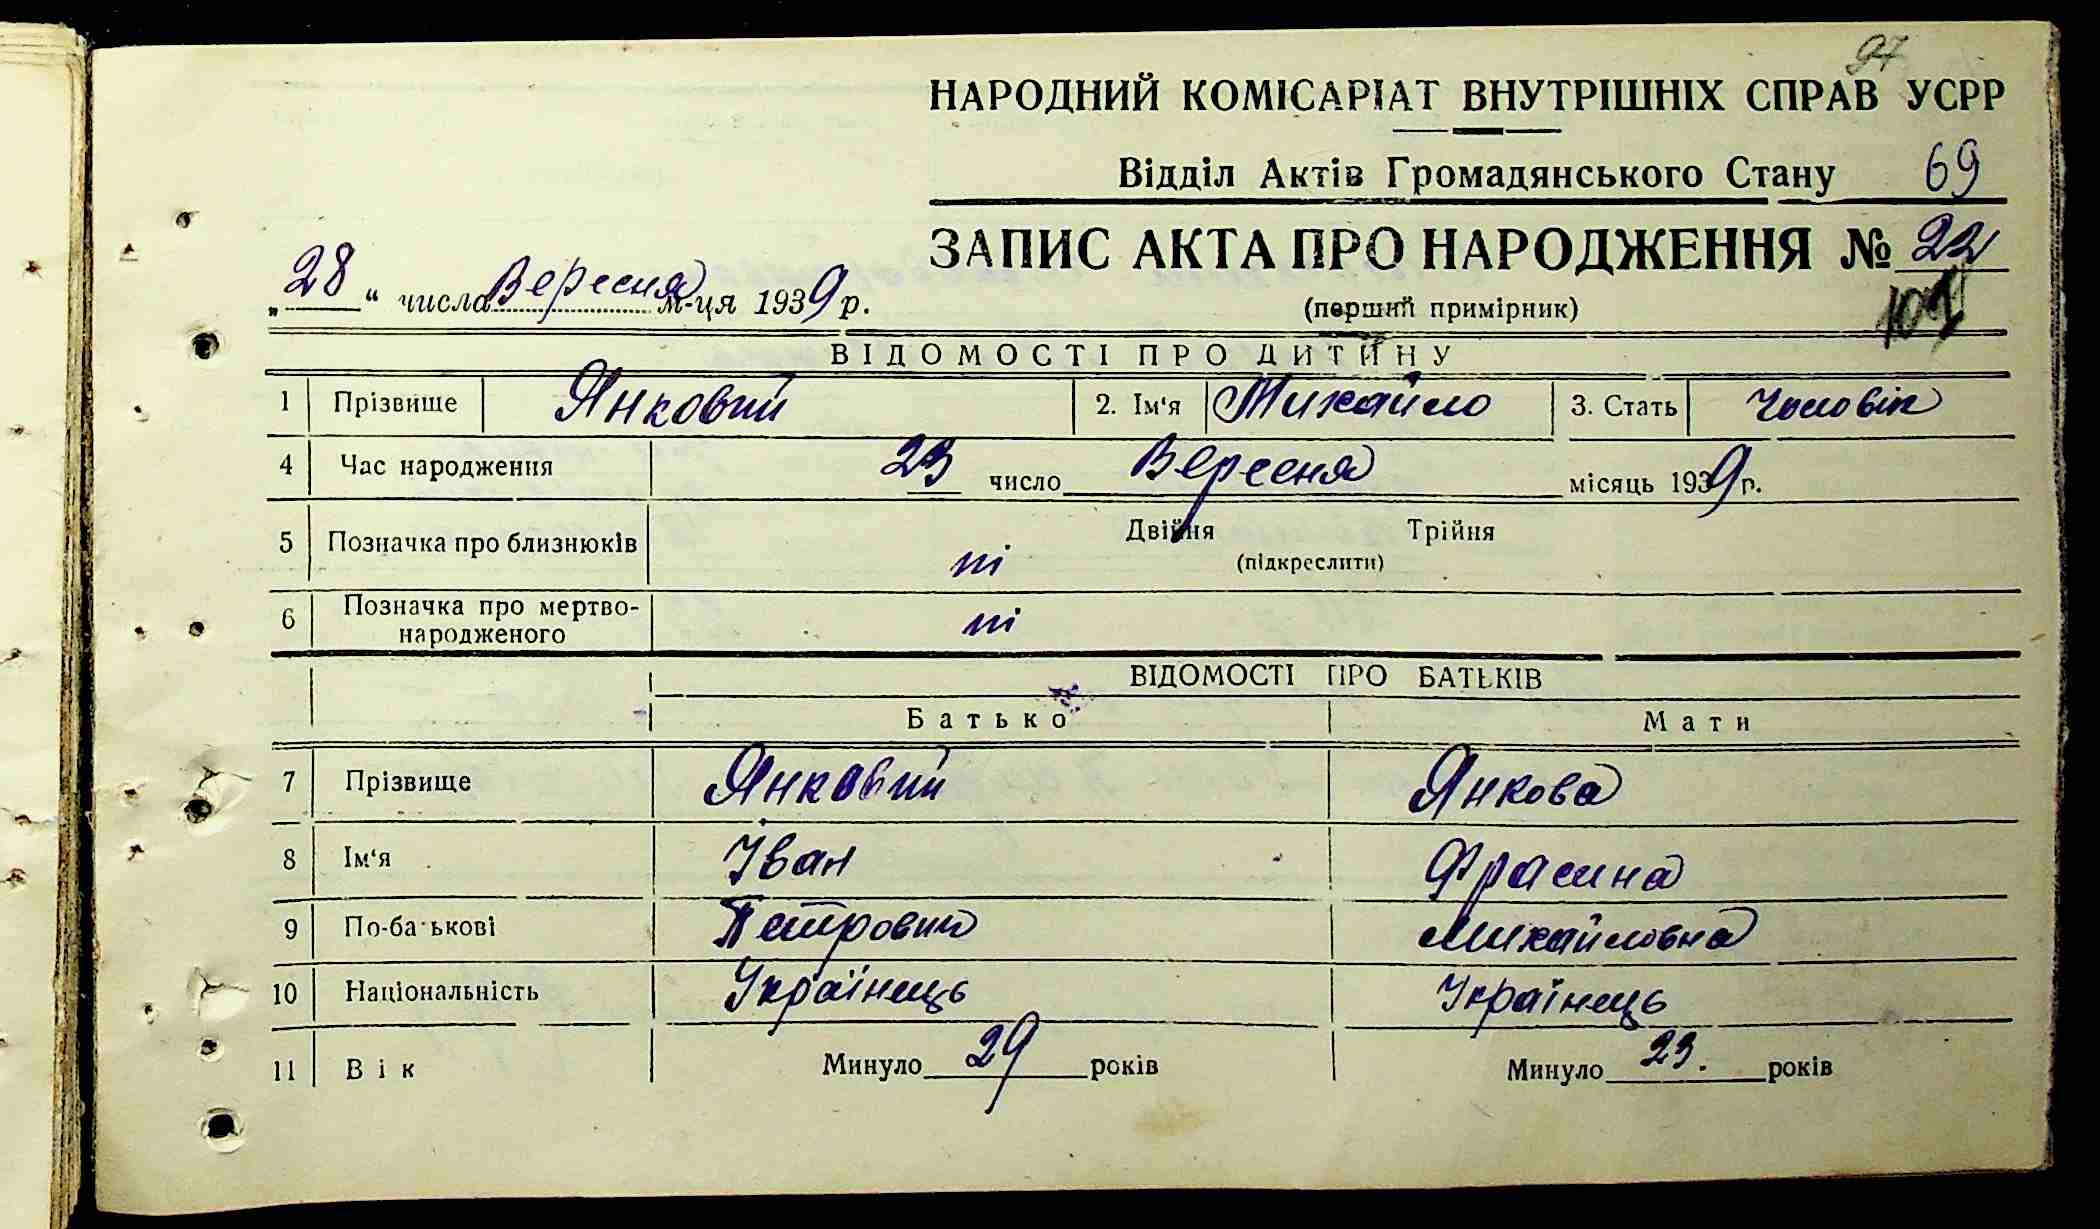 97
НАРОДНИЙ КОМІСАРІАТ ВНУТРІШНІХ СПРАВ УСРР
Відділ Актів Громадянського Стану 69
ЗАПИС АКТА ПРО НАРОДЖЕННЯ № 22
„28“ числа Вересня м-ця 1939 р.
(перший примірник)
ВІДОМОСТІ ПРО ДИТИНУ
1 Прізвище Янковий 2. Ім'я Михайло 3. Стать Чоловік
4 Час народження 23 число Вересня місяць 1939 р.
5 Позначка про близнюків ні Двійня Трійня
(підкреслити)
6 Позначка про мертво-
народженого ні
ВІДОМОСТІ ПРО БАТЬКІВ
Батько Мати
7 Прізвище Янковий Янкова
8 Ім'я Іван Фрасина
9 По-батькові Петрович Михайловна
10 Національність Українець Українець
11 Вік Минуло 29 років Минуло 23. років